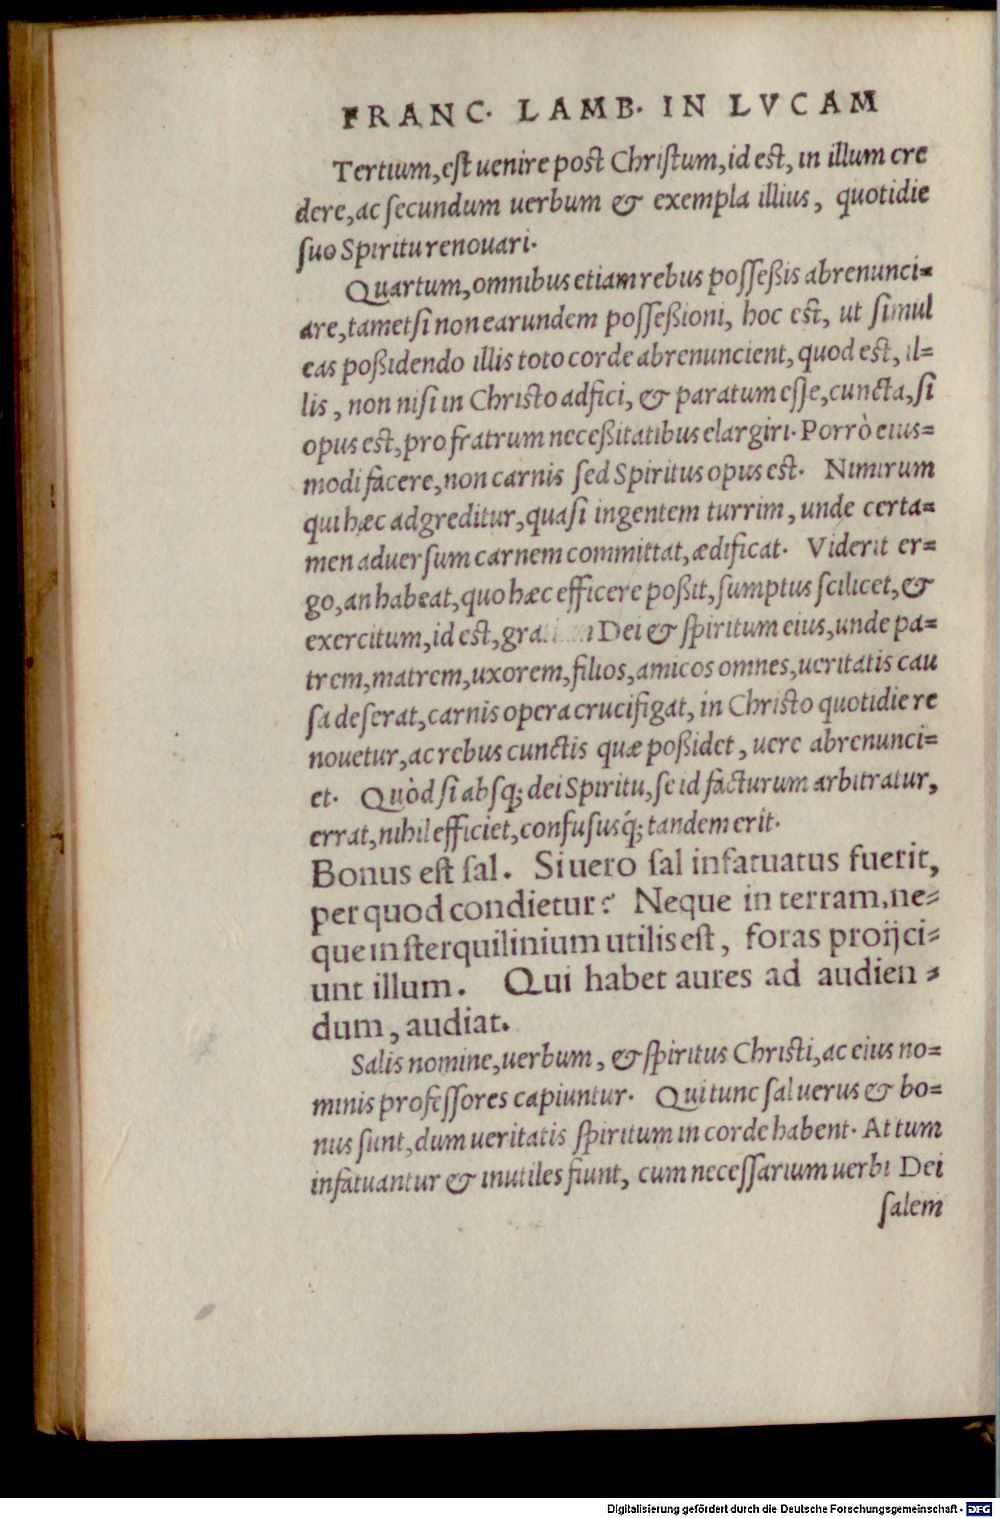 FRANC. LAMB. IN LVCAM
Tertium, est uenire post Christum, id est, in illum cre
dere, ac secundum uerbum & exempla illius, quotidie
suo Spiritu renouari.
Quartum, omnibus etiam rebus posseßis abrenunci=
are, tametsi non earundem posseßioni, hoc est, ut simul
eas poßidendo illis toto corde abrenuncient, quod est, il=
lis, non nisi in Christo adfici, & paratum esse, cuncta, si
opus est, pro fratrum neceßitatibus elargiri. Porrò eius=
modi facere, non carnis sed Spiritus opus est. Nimirum
qui hæc adgreditur, quasi ingentem turrim, unde certa=
men aduersum carnem committat, ædificat. Viderit er=
go, an habeat, quo hæc efficere poßit, sumptus scilicet, &
exercitum, id est, Dei & spiritum eius, unde pa=
trem, matrem, uxorem, filios, amicos omnes, ueritatis cau
sa deserat, carnis opera crucifigat, in Christo quotidie re
nouetur, ac rebus cunctis quæ poßidet, uere abrenunci=
et. Quòd si absq; dei Spiritu, se id facturum arbitratur,
errat, nihil efficiet, confususq́; tandem erit.
Bonus est sal. Si uero sal infatuatus fuerit,
per quod condietur? Neque in terram, ne=
que in sterquilinium utilis est, foras proijci=
unt illum. Qui habet aures ad audien=
dum, audiat.
Salis nomine, uerbum, & spiritus Christi, ac eius no=
minis professores capiuntur. Qui tunc sal uerus & bo=
nus sunt, dum ueritatis spiritum in corde habent. At tum
infatuantur & inutiles fiunt, cum necessarium uerbi Dei
salem
Digitalisierung gefördert durch die Deutsche Forschungsgemeinschaft - DFG